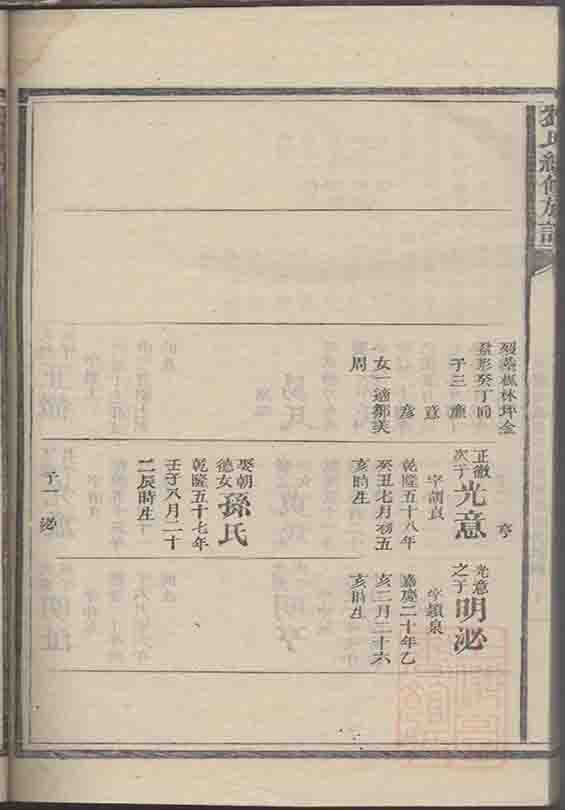 歿葬楓林坪金
盆形癸丁向
子三 應
意
彥
女一適鄒美
周
正徽
次子
光意
字訓良
乾隆五十八年
癸丑七月初五
亥時生
娶朝
德女
孫氏
乾隆五十七年
壬子八月二十
二辰時生
子一 泌
光意
之子
明泌
字穎泉
嘉慶二十年乙
亥二月二十六
亥時生